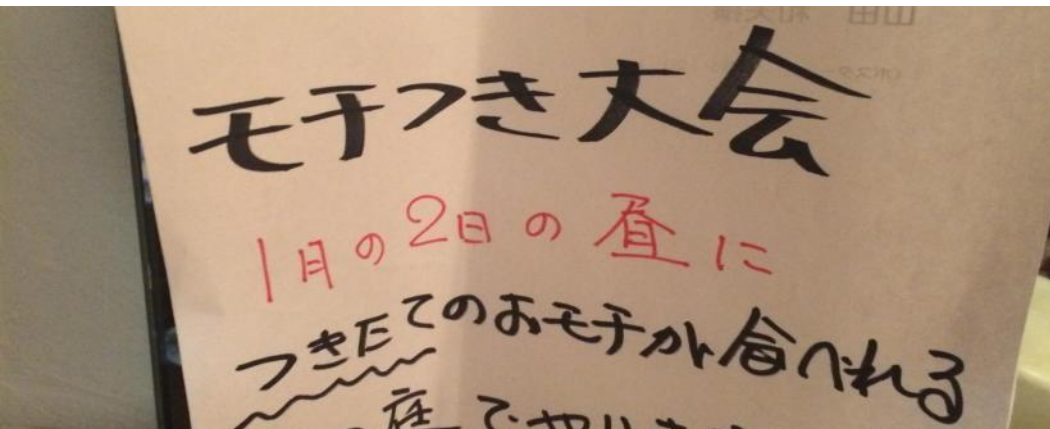 モチつき大会
1月の2日の昼に
つきたてのおモチが食べれる
庭でやり